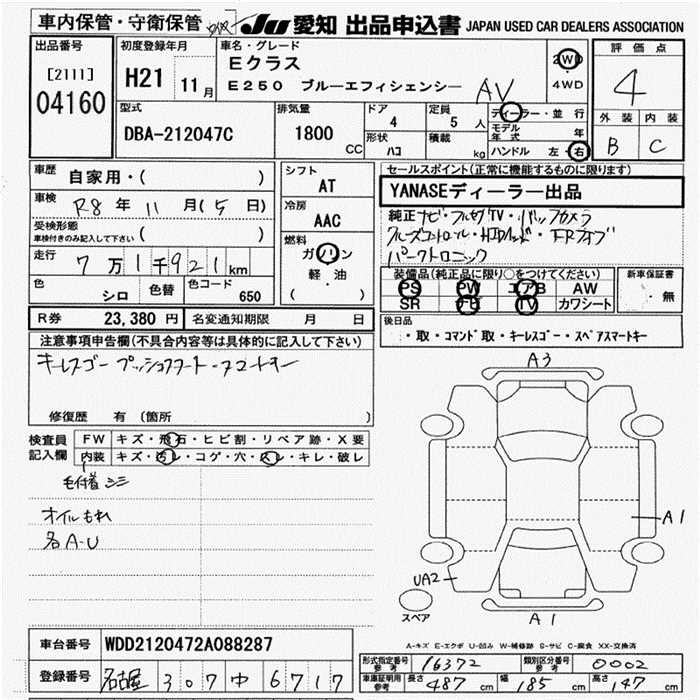 車内保管・守衛保管
JU 愛知 出品申込書 JAPAN USED CAR DEALERS ASSOCIATION
出品番号
[2111]
04160
初度登録年月
H21 11月
車名・グレード
Eクラス
E250 ブルーエフィシェンシー
AV
2WD
4WD
評価点
4
外装 内装
B C
型式
DBA-212047C
排気量
1800 CC
ドア
4
形状
ハコ
定員
5人
積載
kg
ディーラー・並行
モデル年式 年
ハンドル 左・右
車歴
自家用・( )
車検
R8年11月(5日)
受検形態
車検付きのみ記入して下さい ( )
走行
7万1千921km
色
シロ
色替
色コード
650
シフト
AT
冷房
AAC
燃料
ガソリン
軽油
( )
セールスポイント(正常に機能するものに限ります)
YANASEディーラー出品
純正ナビ・フルセグTV・バックカメラ
クルーズコントロール・HIDライト・FRドラブ
パークトロニック
装備品(純正品に限り○をつけてください)
PS PW エアB AW
SR TV カワシート
新車保証書
・無
R券 23,380円 名変通知期限 月 日
後日品
・取・コマンド取・キーレスゴー・スペアスマートキー
注意事項申告欄(不具合内容等は具体的に記入して下さい)
キーレスゴー プッシュスタート・スマートキー
修復歴 有(箇所 )
検査員記入欄
FW キズ・飛石・ヒビ割・リペア跡・X要
内装 キズ・汚レ・コゲ・穴・スレ・キレ・破レ
毛付着 シミ
オイルもれ
各A-U
A3
A1
UA2
スペア
A1
A-キズ E-エクボ U-凹み W-補修跡 S-サビ C-腐食 XX-交換済
車台番号 WDD2120472A088287
登録番号 名古屋 307 ゆ 6717
形式指定番号参考 16372 類別区分番号参考 0002
車庫証明用参考 長さ 487cm 幅 185cm 高さ 147cm